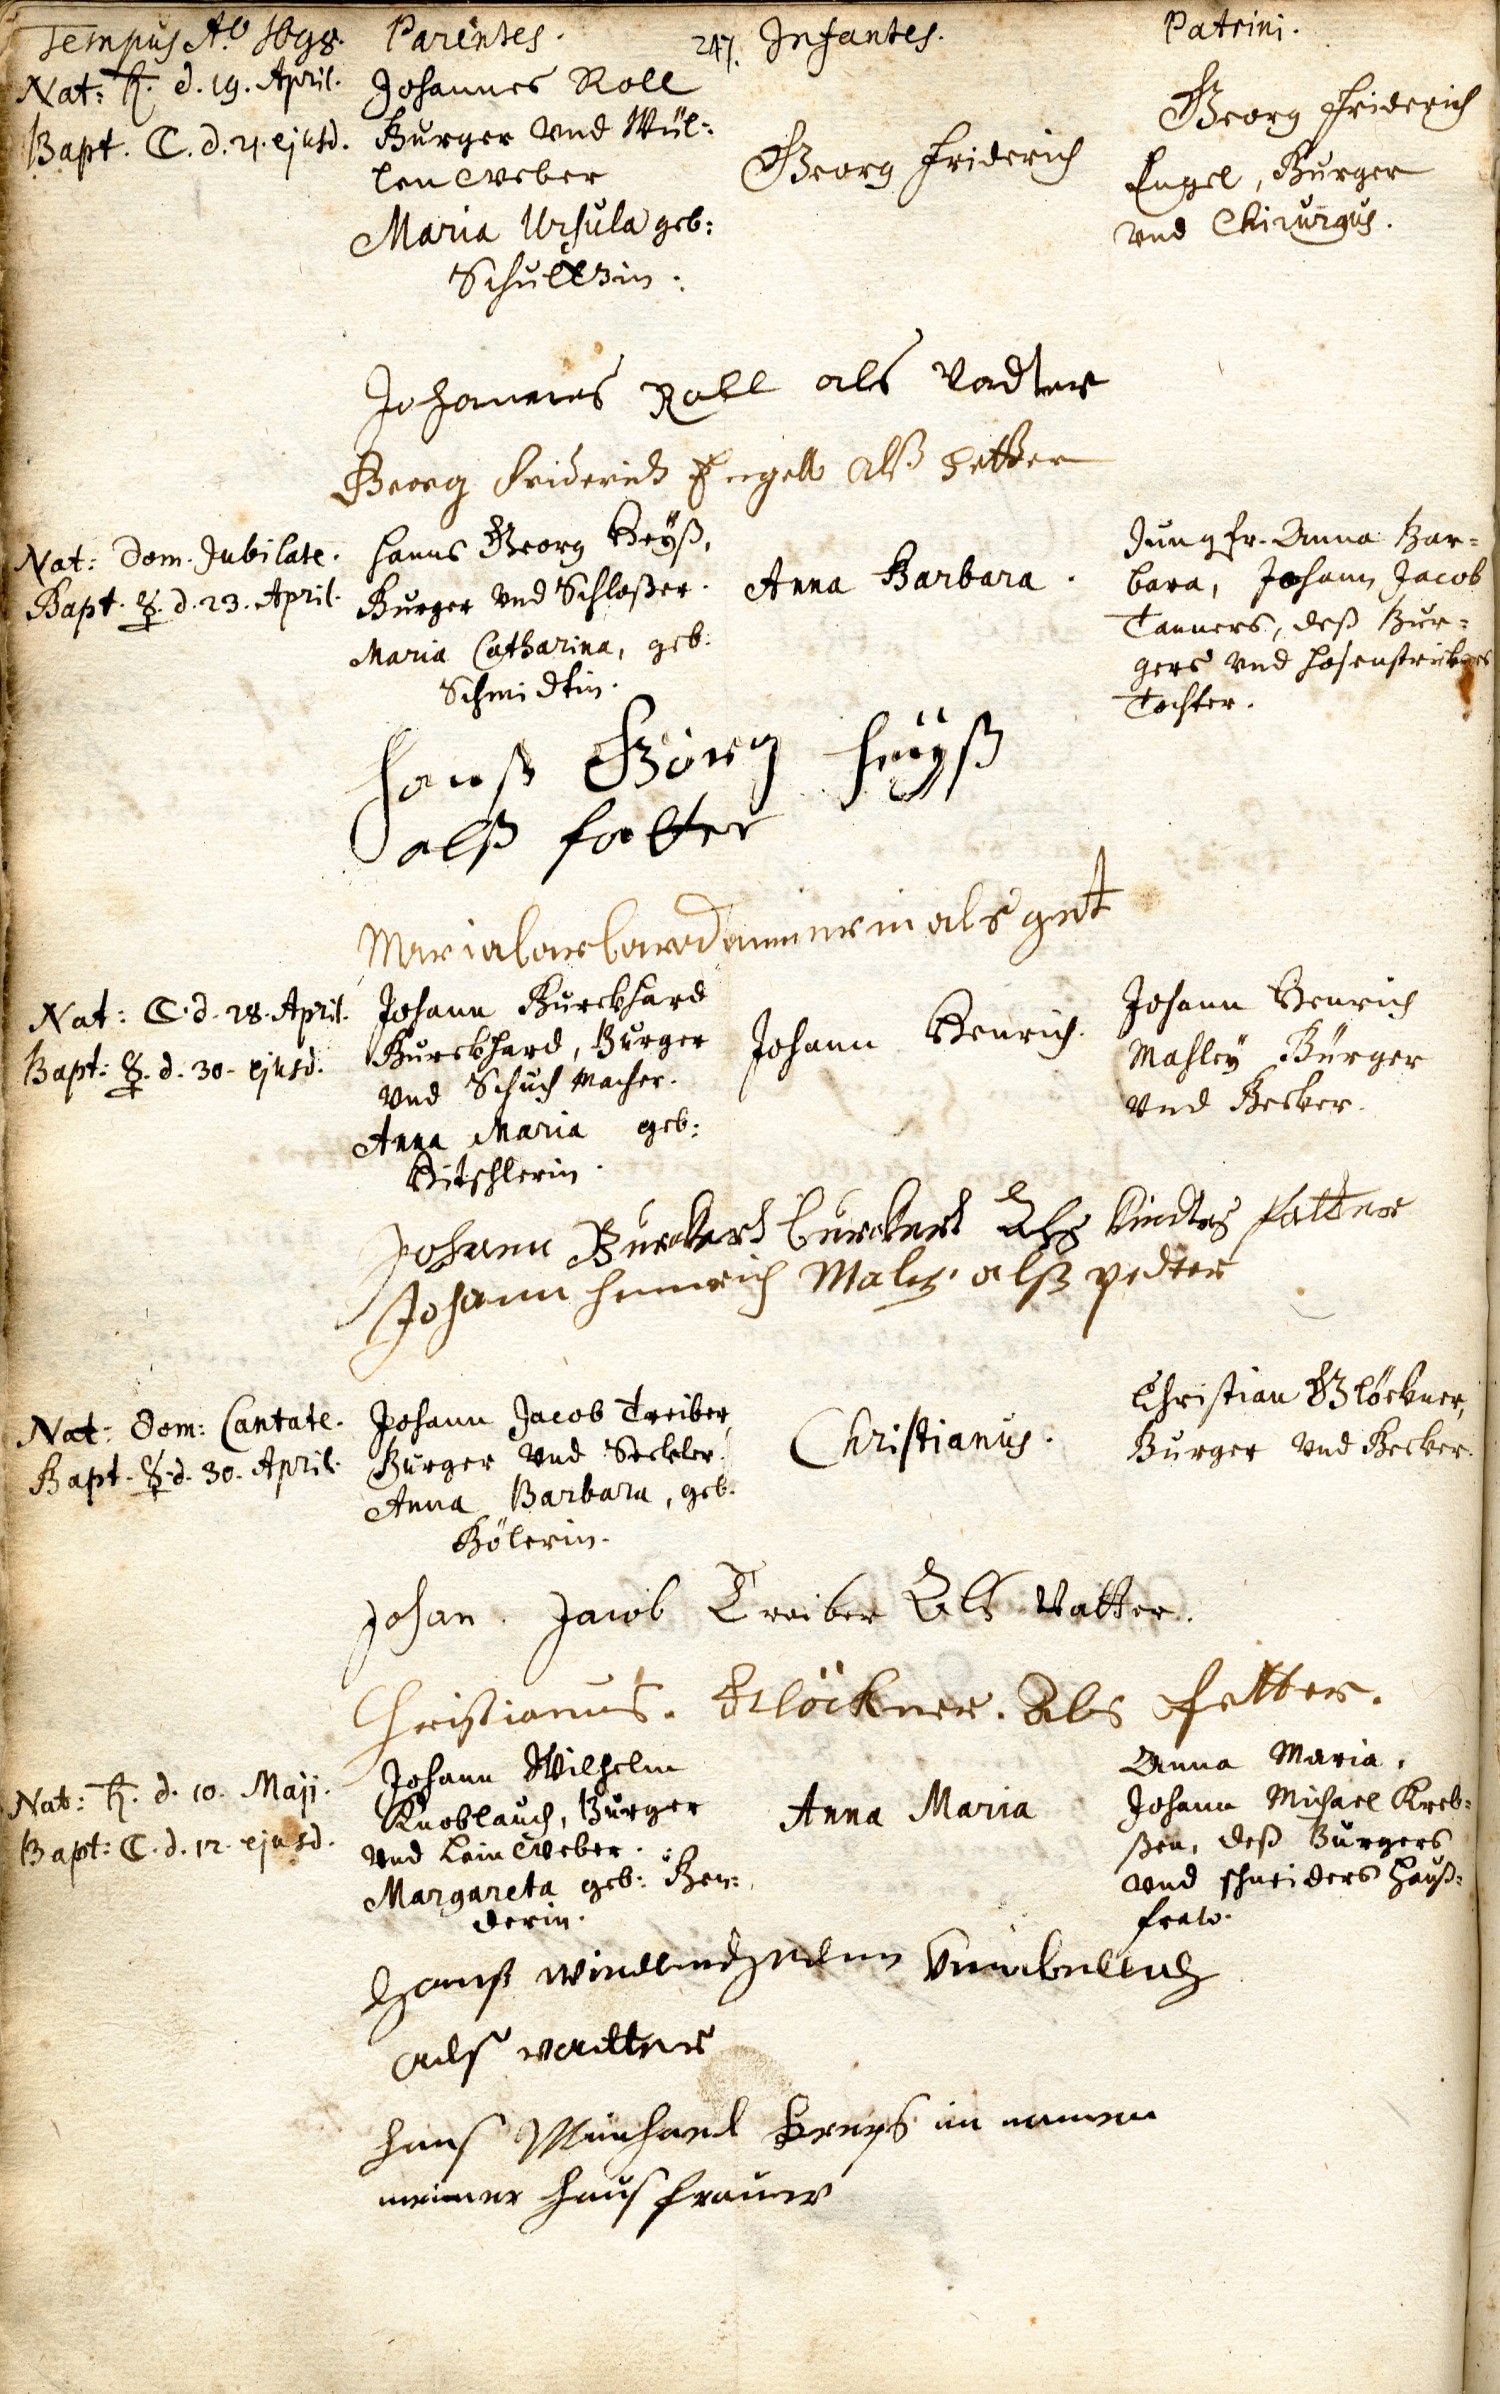 Tempus Ao. 1698.
Parentes.
247.
Infantes.
Patrini.
Nat: ♄. d. 19. April.
Bapt. ☾. d. 21. ejusd.
Johannes Roll
Burger vnd Wül-
lenweber
Maria Ursula geb:
Schultzin.
Georg Friderich
Georg Friderich
Engel, Burger
vnd Chirurgus.
Johannes Roll als Vadter
Georg Friderich Engell alß petter
Nat: Dom. Jubilate.
Bapt. ☿. d. 23. April.
Hanns Georg Heyß,
Burger vnd Schloßer.
Maria Catharina, geb.
Schmidtin.
Anna Barbara.
Jungfr. Anna Bar-
bara, Johann Jacob
Tanners, deß Bur-
gers vnd Hosenstrickers
Tochter.
Hanß Görg Heyß
alß fatter
Maria barbara dannerin als gett
Nat: ☾. d. 28. April.
Bapt: ☿. d. 30. ejusd.
Johann Burckhard
Burckhard, Burger
vnd Schuchmacher.
Anna Maria geb:
Hitschlerin.
Johann Henrich.
Johann Henrich
Mahley Burger
vnd Becker.
Johann Burckhard burckhard Als Kindtes fatter
Johann Heinrich Maley alß pedter
Nat: Dom: Cantate.
Bapt. ☿. d. 30. April.
Johann Jacob Treiber,
Burger vnd Seckler.
Anna Barbara, geb.
Bölerin.
Christianus.
Christian Glöckner,
Burger vnd Becker.
Johan. Jacob Treiber Als Vatter.
Christianus. Glöckner. Als Petter.
Nat: ♄. d. 10. Maji.
Bapt: ☾. d. 12. ejusd.
Johann Wilhelm
Knoblauch, Burger
vnd Leinweber.
Margareta geb: Ben-
derin.
Anna Maria
Anna Maria,
Johann Michael Kreb-
ßen, deß Burgers
vnd schneiders Hauß-
fraw.
Hanß
als vatter
Hans Michael Kreps im namen
meiner Hausfrauw